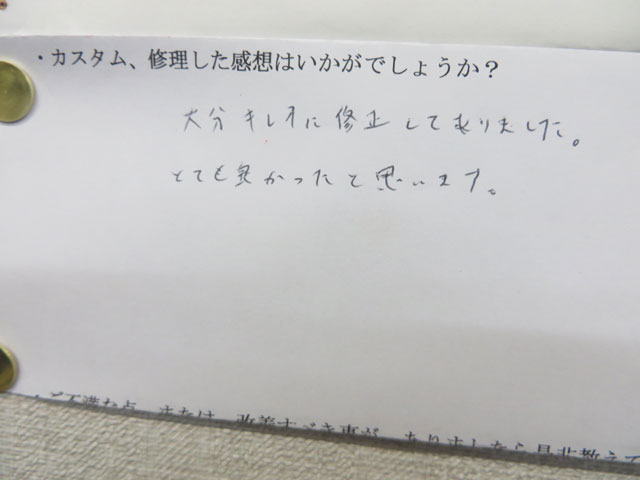 ・カスタム、修理した感想はいかがでしょうか？
大分キレイに修正してありました。
とても良かったと思います。
・ご不満な点、または、改善すべき事が、ありましたら是非教えて